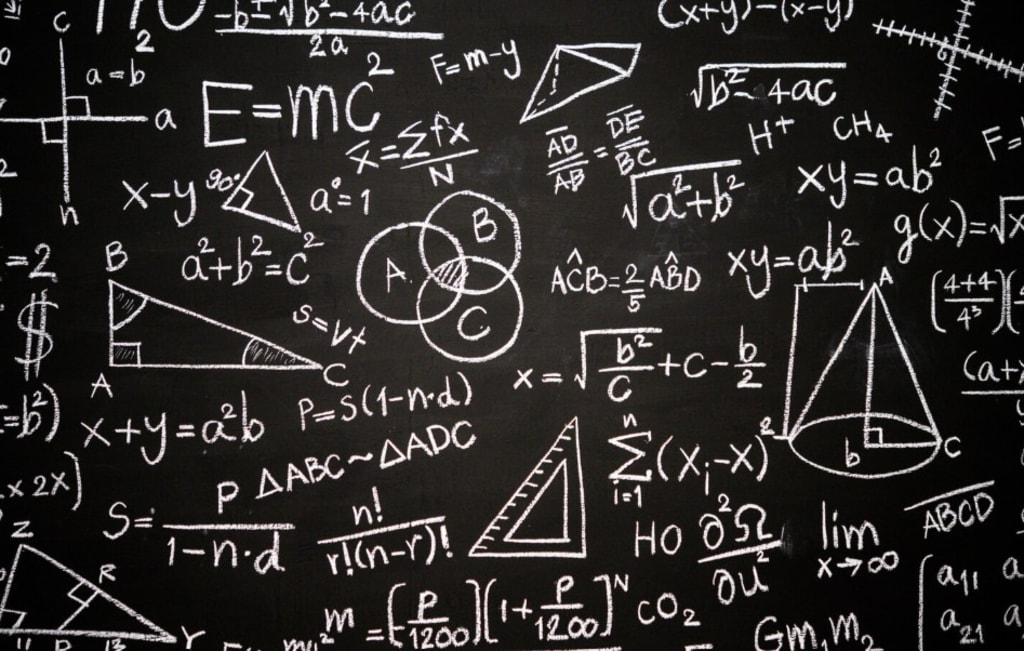 -b±√b²-4ac
2a
(x+y)-(x-y)
C
2
a=b
a
n
E=mc²
F=m-y
x̄=∑fx
N
AD/AB=DE/BC
√b²-4ac
H+
CH₄
F=
x-y
90°
a°=1
√a²+b²
xy=ab²
g(x)=√x
=2
B
a²+b²=c²
A
B
C
AĈB=2/5 AB̂D
xy=ab²
A
4+4
4³
$
S=Vt
A
C
x=√b²/C+C-b/2
=b²)
x+y=a²b
P=S(1-n·d)
ΔABC~ΔADC
n
∑(xᵢ-x)
i=1
2
b
C
(a+x
x2x)
S=P
1-n·d
n!
r!(n-r)!
HO
∂²Ω
∂u²
lim
x→∞
ABCD
Z
R
Y
m=[P/1200][1+P/1200]ᴺ
CO₂
Gm₁m₂
a₁₁ a
a₂₁ a